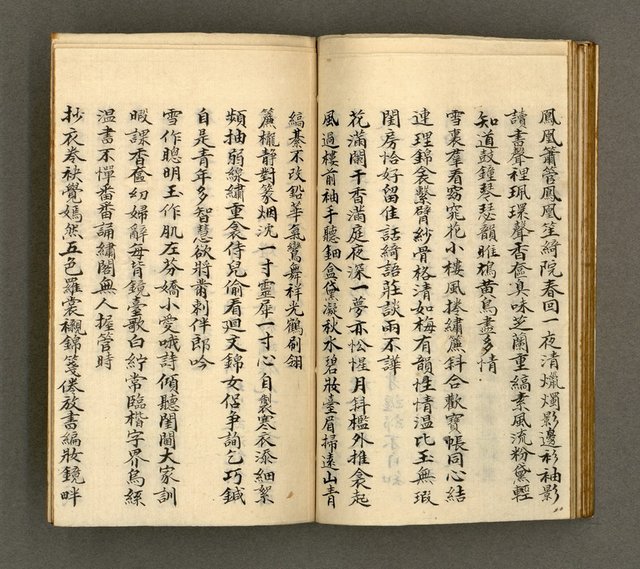 鳳凰簫管鳳凰笙綺院春回一夜清爉燭影邊衫袖影
讀書聲裡珮環聲香奩真味芝蘭重縞素風流粉黛輕
知道鼓鐘琴瑟韻雎鳩黃鳥盡多情
雪裏羣看窈窕花小樓風捲繡簾斜合歡寶帳同心結
連理錦衾繫臂紗骨格清如梅有韻性情温比玉無瑕
閨房恰好留佳話綺語莊談兩不譁
花滿闌干香滿庭夜深一夢亦惺惺月斜檻外推衾起
風過樓前袖手聽鈿盒黛凝秋水碧妝臺眉掃遠山青
縞綦不改鉛華氣鸞舞祥光鶴刷翎
簾櫳静對篆烟沈一寸靈犀一寸心自製寒衣添細絮
頻抽弱線繡重衾侍兒偷看廻文錦女侶爭詢乞巧鍼
自是青年多智慧欲將虀刺伴郎吟
雪作聰明玉作肌左芬嬌小愛哦詩傾聽閨閫大家訓
暇課香奩幼婦辭每背鏡臺歌白紵常臨楷字界烏絲
温書不憚番番誦繡閣無人握管時
抄衣卷袂覺嫣然五色羅裳襯錦箋倦放書編妝鏡畔